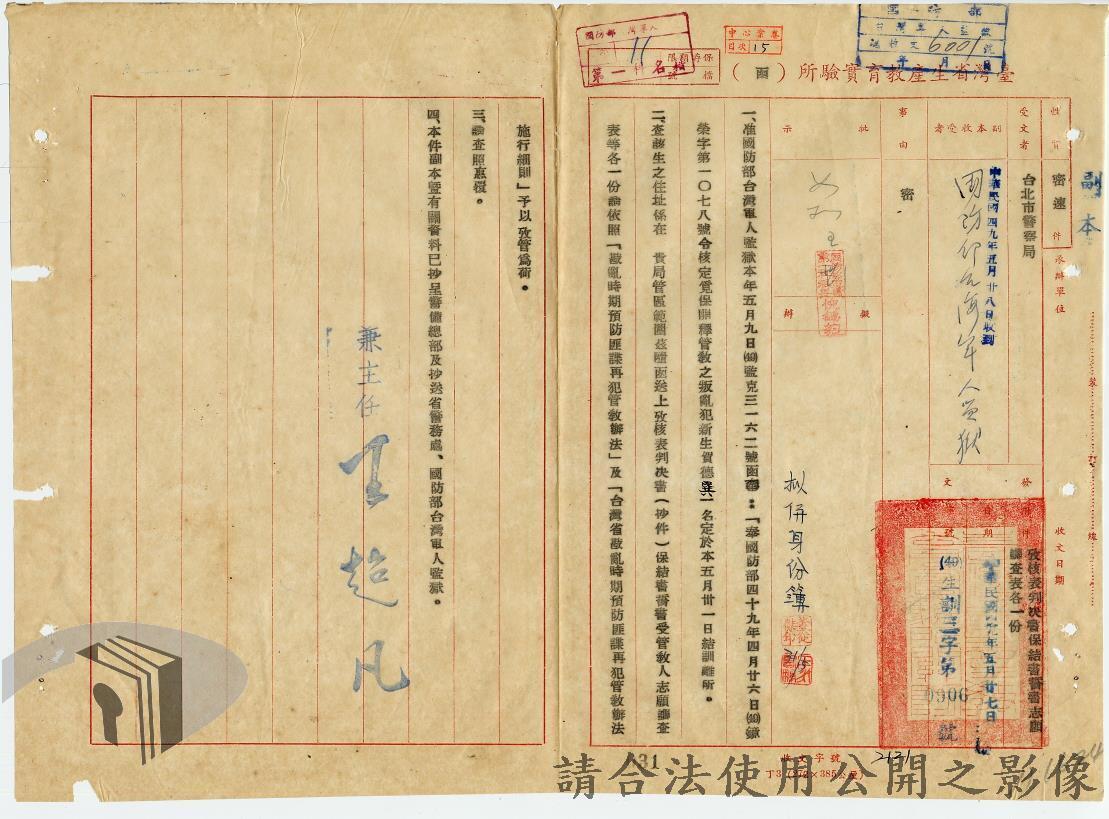 副本
臺灣省生產教育實驗所（函）
中心業務
目次 15
11
6001
保存期限
檔號
性質
密速件
承辦單位
收文日期
受文者
台北市警察局
副本收受者
中華民國四九年五月廿八日收到
國防部台灣軍人監獄
事由
密
批示
擬辦
如擬
拟併身份簿
發文
附件
攷核表判决書保結書誓書志願調查表各一份
日期
中華民國四九年五月廿七日
字號
(49)生訓三字第0906號
一、准國防部台灣軍人監獄本年五月九日(49)監克三一六二號函：「奉國防部四十九年四月廿六日(49)
榮字第一〇七八號令核定覓保開釋管教之叛亂犯新生賀德巽一名定於本五月卅一日結訓離所。
二、查該生之住址係在　貴局管區範圍茲隨函送上攷核表判决書（抄件）保結書誓書受管教人志願調查
表等各一份請依照「戡亂時期預防匪諜再犯管教辦法」及「台灣省戡亂時期預防匪諜再犯管教辦法
施行細則」予以攷管為荷。
三、請查照惠覆。
四、本件副本暨有關資料已抄呈警備總部及抄送省警務處、國防部台灣軍人監獄。
兼主任 王超凡
裝訂線
收文字號
2131
丁3(272×385公厘)
31
請合法使用公開之影像